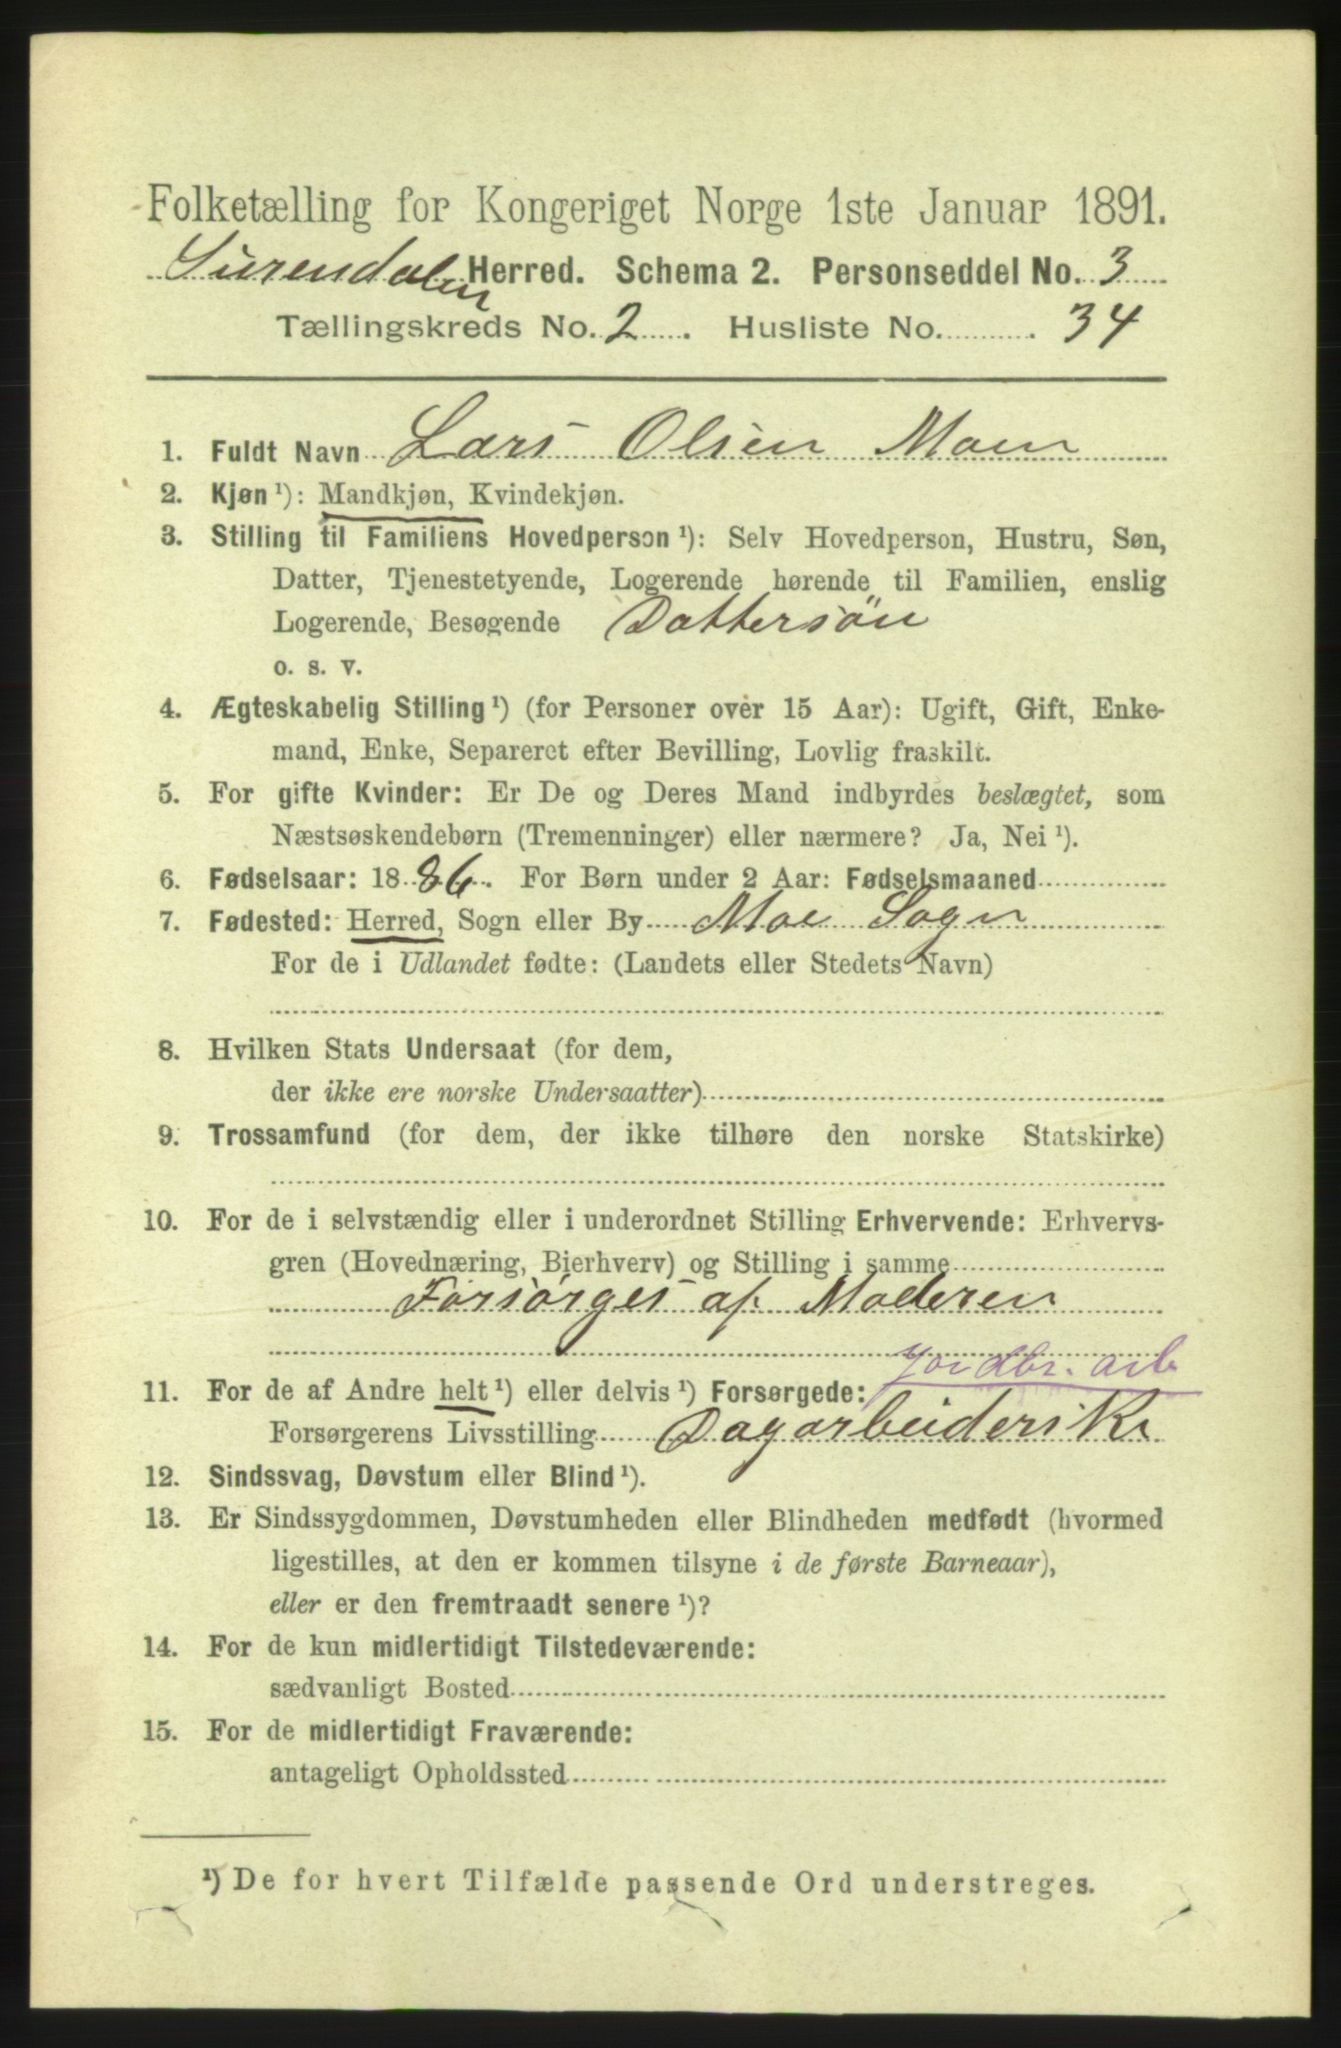 Folketælling for Kongeriget Norge 1ste Januar 1891.
Surendalen Herred. Schema 2. Personseddel No. 3
Tællingskreds No. 2. Husliste No. 34
1. Fuldt Navn Lars Olsen Moen
2. Kjøn ¹): Mandkjøn, Kvindekjøn.
3. Stilling til Familiens Hovedperson ¹): Selv Hovedperson, Hustru, Søn,
Datter, Tjenestetyende, Logerende hørende til Familien, enslig
Logerende, Besøgende Dattersön
o. s. v.
4. Ægteskabelig Stilling ¹) (for Personer over 15 Aar): Ugift, Gift, Enke-
mand, Enke, Separeret efter Bevilling, Lovlig fraskilt.
5. For gifte Kvinder: Er De og Deres Mand indbyrdes beslægtet, som
Næstsøskendebørn (Tremenninger) eller nærmere? Ja, Nei ¹).
6. Fødselsaar: 1886. For Børn under 2 Aar: Fødselsmaaned
7. Fødested: Herred, Sogn eller By Moe Sogn
For de i Udlandet fødte: (Landets eller Stedets Navn)
8. Hvilken Stats Undersaat (for dem,
der ikke ere norske Undersaatter)
9. Trossamfund (for dem, der ikke tilhøre den norske Statskirke)
10. For de i selvstændig eller i underordnet Stilling Erhvervende: Erhvervs-
gren (Hovednæring, Bierhverv) og Stilling i samme
Forsörges af Moderen
jordbr. arb
11. For de af Andre helt ¹) eller delvis ¹) Forsørgede:
Forsørgerens Livsstilling Dagarbeiderske
12. Sindssvag, Døvstum eller Blind ¹).
13. Er Sindssygdommen, Døvstumheden eller Blindheden medfødt (hvormed
ligestilles, at den er kommen tilsyne i de første Barneaar),
eller er den fremtraadt senere ¹)?
14. For de kun midlertidigt Tilstedeværende:
sædvanligt Bosted
15. For de midlertidigt Fraværende:
antageligt Opholdssted
¹) De for hvert Tilfælde passende Ord understreges.